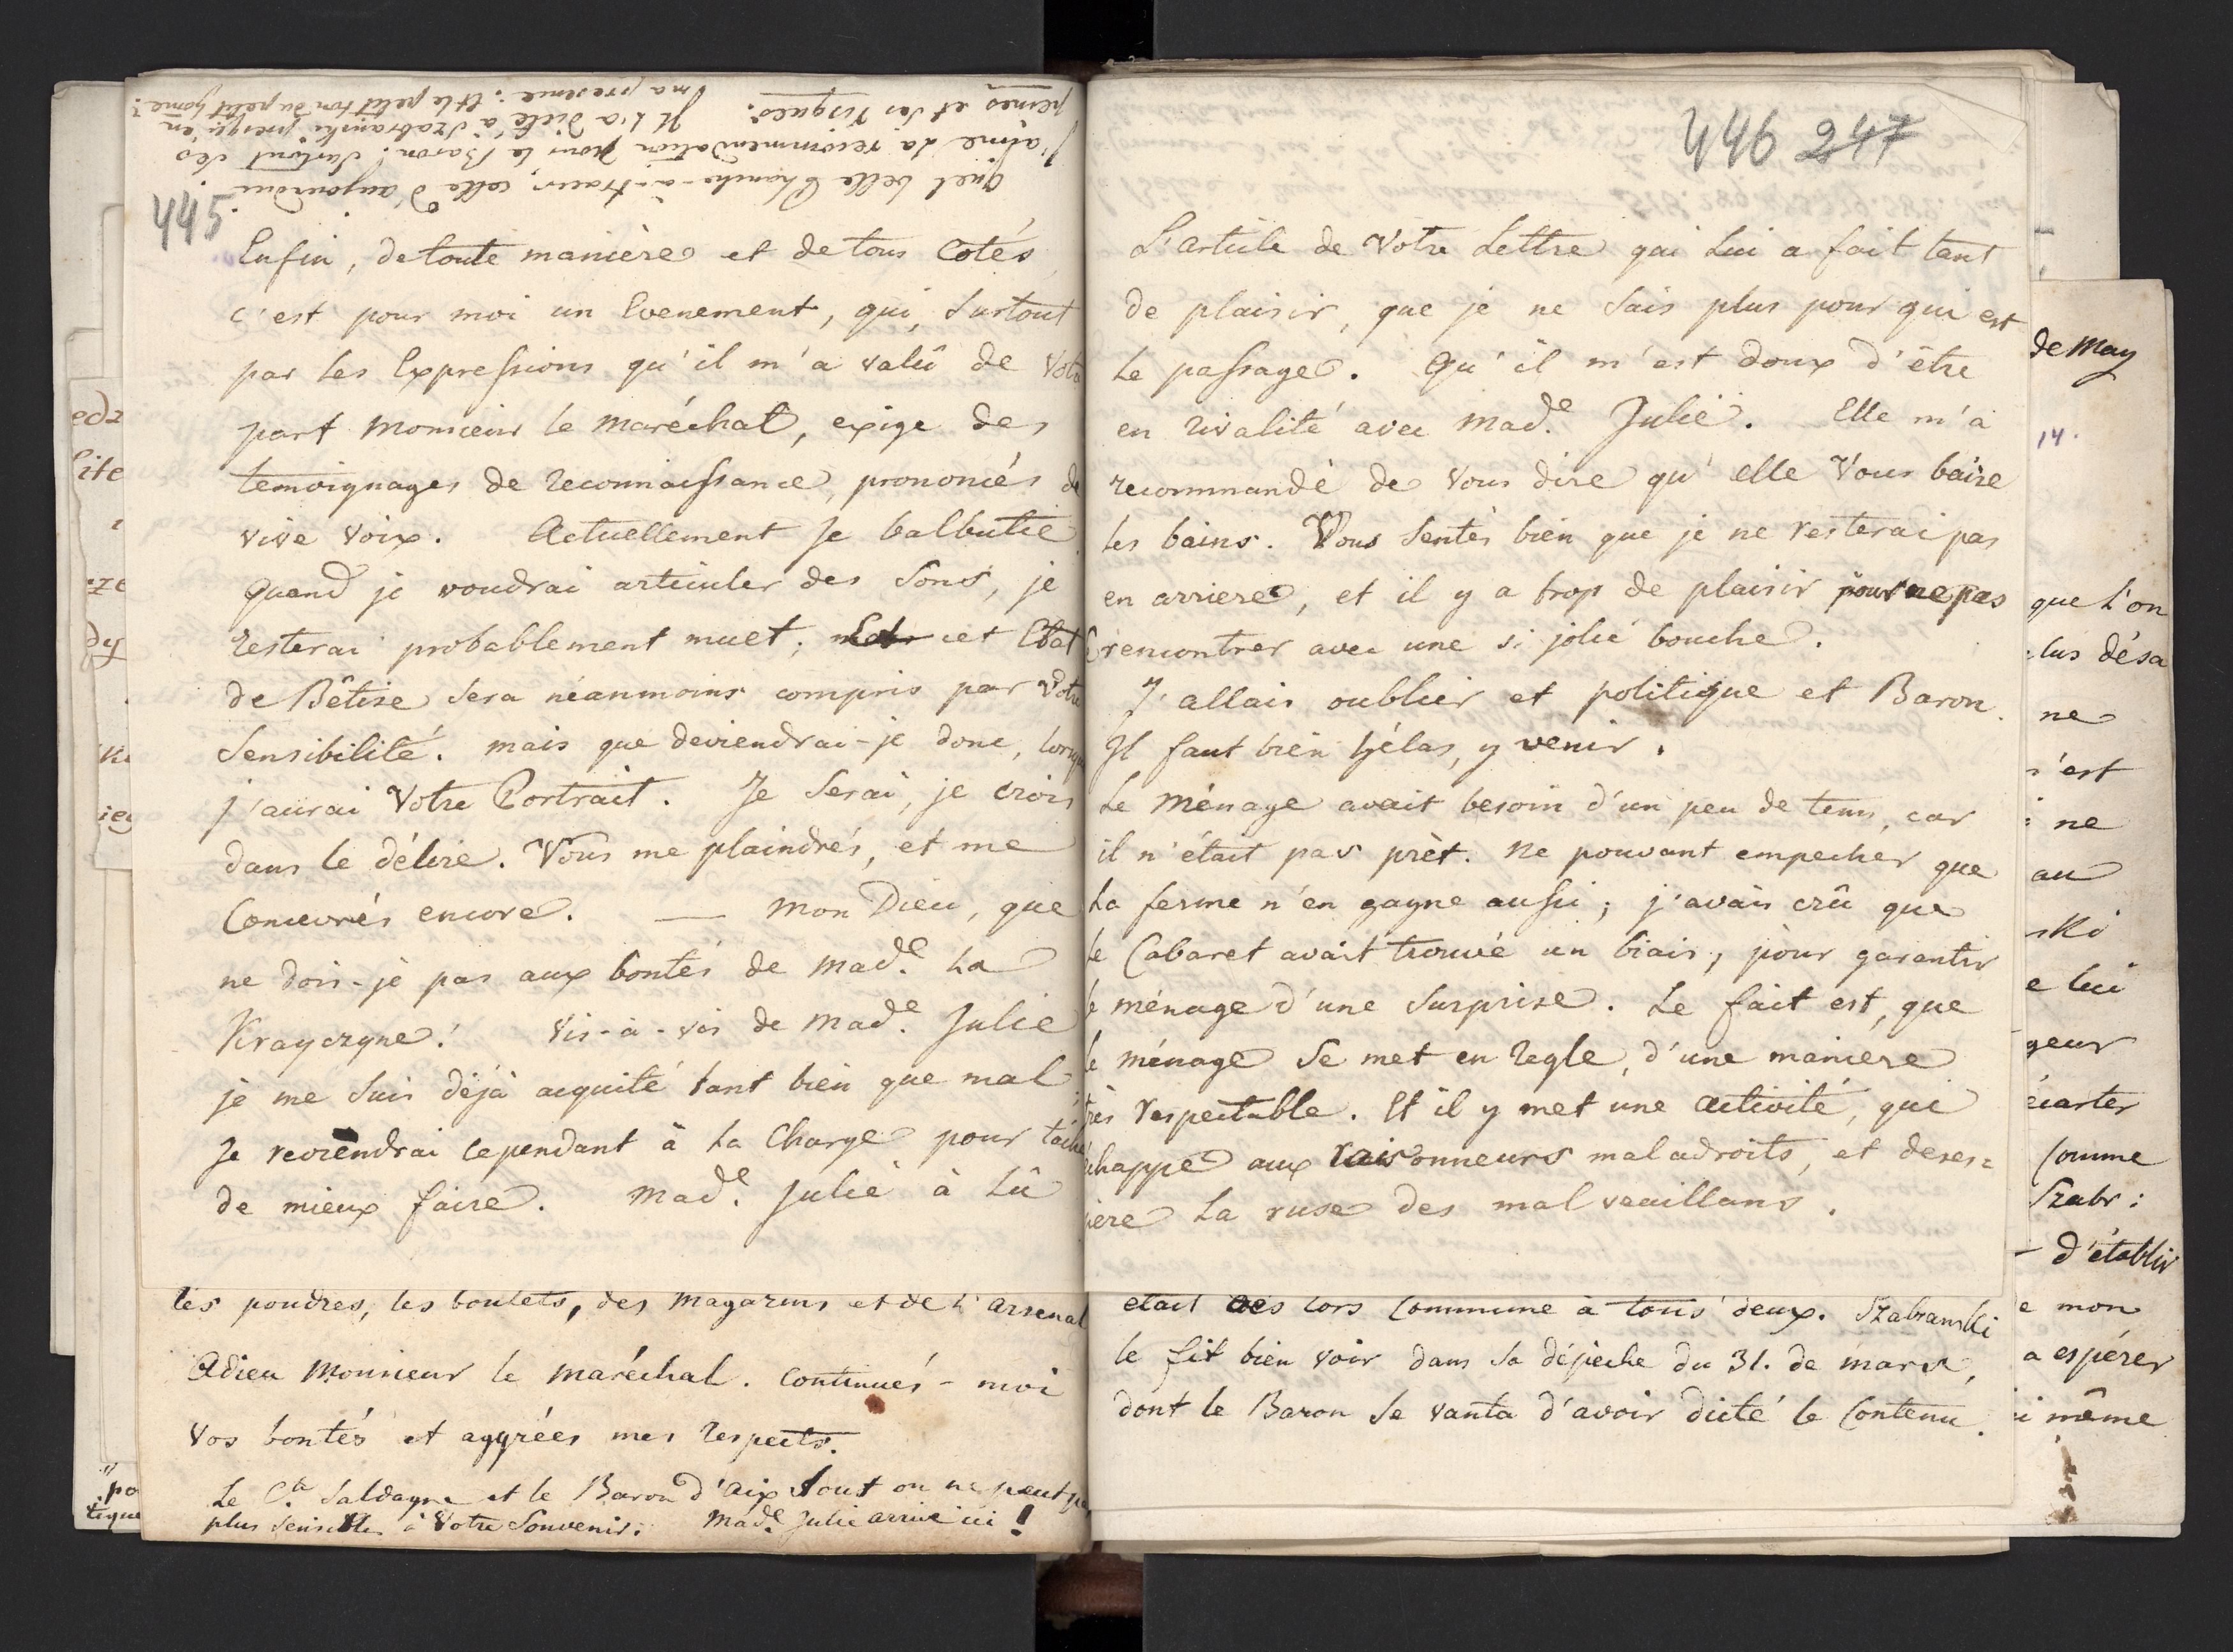 Quel belle Chanche-à-traver, celle d'aujourdui.
J'aime la recommendation pour le Baron! Surtout ses
peines et ses risques. Il l'a dicté à Szabranski presqu'en
ma presence. Et le petit ton du petit home?
445
Enfin, de toute manière et de tous Cotés
c'est pour moi un Evenement, qui, surtout
par les Expressions qu'il m'a valû de Votre
part Monsieur le maréchal, exige des
temoignages de reconnaissance, prononcés de
vive voix. Actuellement Je balbutie
quand je voudrai articuler des Sons, je
resterai probablement muet; cet Etat
de Bêtise sera néanmoins compris par Votre
Sensibilité. mais que deviendrai-je donc, lorsque
j'aurai Votre Portrait. Je Serai, je crois
dans le délire. Vous me plaindrés, et me
Conceverés encore. — Mon Dieu, que
ne dois-je pas aux bontés de Made. La
Krayczyne! Vis-à-vis de Made. Julie
je me suis déjà acquité tant bien que mal
Je reviendrai cependant à la Charge pour tâcher
de mieux faire. Made. Julie à lû
les poudres, les boulets, des Magazins et de l'arsenal
Adieu Monsieur le maréchal. Continués-moi
Vos bontés et aggréés mes respects.
Le Cte. Saldagne et le Baron d'Aix sont on ne peut pa
plus sensibles à Votre Souvenir. Made. Julie arrive ici!
446 247
L'article de Votre Lettre qui Lui a fait tant
de plaisir, que je ne sais plus pour qui est
Le passage. Qu'il m'est doux d'être
en rivalité avec Made. Julie. Elle m'a
recommandé de Vous dire qu'elle Vous baise
les bains. Vous Sentés bien que je ne resterai pas
en arriere, et il y a trop de plaisir pour ne pas
rencontrer avec une si jolie bouche.
J'allais oublier et politique et Baron.
Il faut bien hélas, y venir.
Le Ménage avait besoin d'un peu de tems, car
il n'était pas prèt. Ne pouvant empecher que
La ferme n'en gagne aussi; j'avais crû que
le Cabaret avait trouvé un biais, pour garantir
le ménage d'une Surprise. Le fait est, que
le ménage Se met en regle, d'une maniere
très respectable. Et il y met une activité, qui
échappe aux raisonneurs maladroits, et deses=
père La ruse des malveuillans.
etait des lors Commune à tous deux. Szabranski
le fit bien voir dans sa dépeche du 31. de mars,
dont le Baron Se vanta d'avoir dicté le Contenu.
de May
14.
que l'on
lus désa
ne
n'est
ne
au
ski
e lui
geur
écarter
Comme
Szabr:
d'établir
e mon
a espérer
i même
edz
ite
dy
ieg
"po
tique